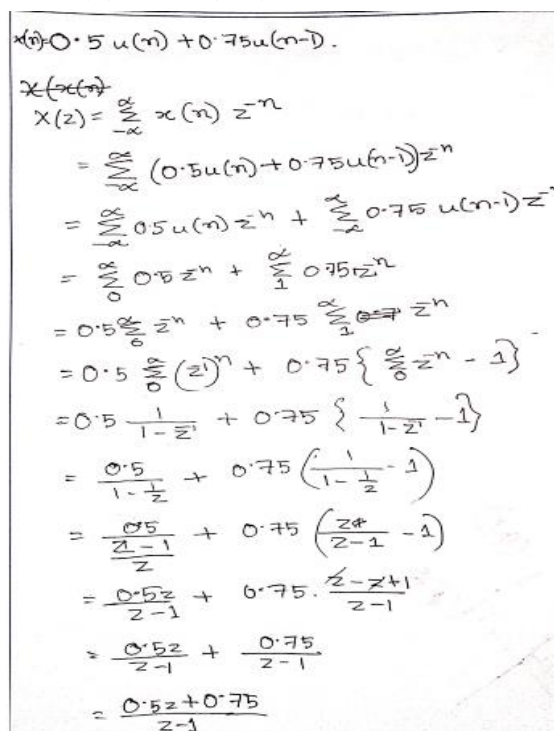 x(n)=0.5 u(n) + 0.75u(n-1).
X(x(n)
X(z) = ∑_{-∝}^{∝} x(n) z^{-n}
= ∑_{-∝}^{∝} (0.5u(n)+0.75u(n-1))z^{-n}
= ∑_{-∝}^{∝} 0.5 u(n) z^{-n} + ∑_{-∝}^{∝} 0.75 u(n-1) z^{-n}
= ∑_{0}^{∝} 0.5 z^{-n} + ∑_{1}^{∝} 0.75 z^{-n}
= 0.5 ∑_{0}^{∝} z^{-n} + 0.75 ∑_{1}^{∝} z^{-n}
= 0.5 ∑_{0}^{∝} (z^{-1})^n + 0.75 { ∑_{0}^{∝} z^{-n} - 1}
= 0.5 \frac{1}{1-z^{-1}} + 0.75 { \frac{1}{1-z^{-1}} - 1}
= \frac{0.5}{1-\frac{1}{z}} + 0.75 (\frac{1}{1-\frac{1}{z}} - 1)
= \frac{0.5}{\frac{z-1}{z}} + 0.75 (\frac{z}{z-1} - 1)
= \frac{0.5z}{z-1} + 0.75 . \frac{z-z+1}{z-1}
= \frac{0.5z}{z-1} + \frac{0.75}{z-1}
= \frac{0.5z+0.75}{z-1}